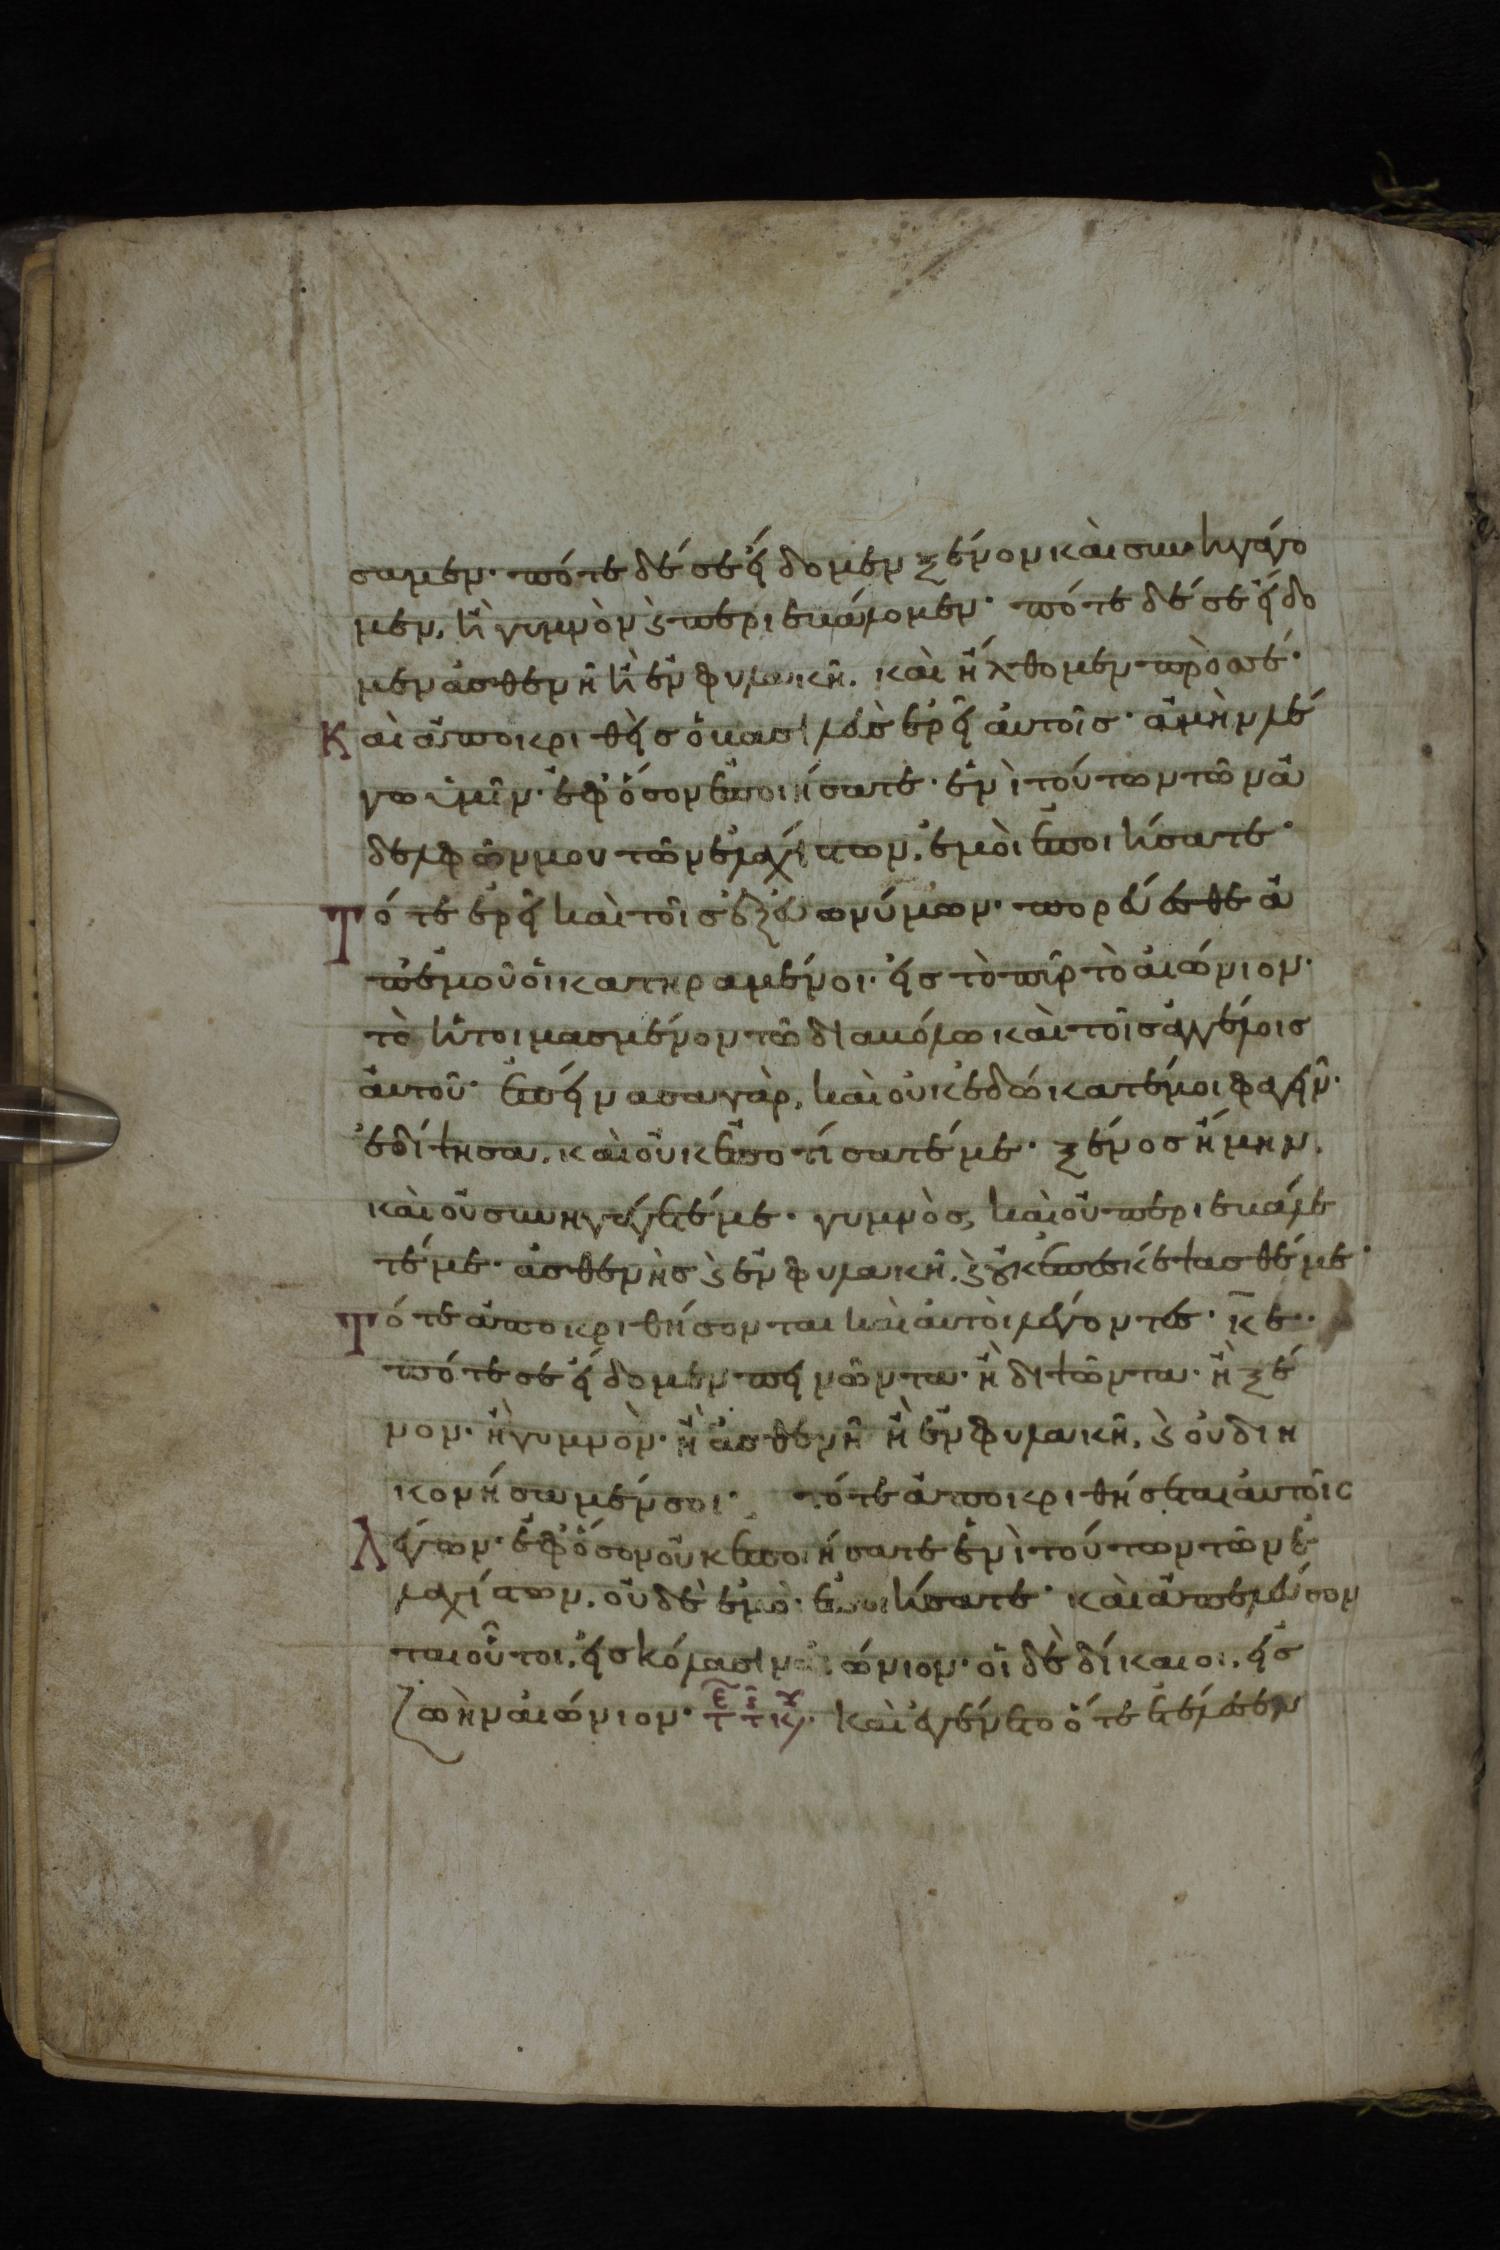 σαμεν· πότε δέ σε εἴδομεν ξένον καὶ συνηγάγο
μεν, ἢ γυμνὸν ϗ περιεβάλομεν· πότε δέ σε εἴδο
μεν ἀσθενῆ ἢ ἐν φυλακῆ. καὶ ἤλθομεν πρὸς σέ·
Καὶ ἀποκριθεὶς ὁ βασιλεὺς ἐρεῖ αὐτοῖς· ἀμὴν λέ
γω ὑμῖν· ἐφ ὅσον ἐποιήσατε· ἑνὶ τούτων τῶν ἀ
δελφῶν μου τῶν ἐλαχίστων, ἐμοὶ ἐποιήσατε·
Τότε ἐρεῖ καὶ τοῖς ἐξ εὐωνύμων· πορεύεσθε ἀ
π ἐμοῦ οἱ κατηραμένοι· εἰς τὸ πῦρ τὸ αἰώνιον·
τὸ ἡτοιμασμένον τῶ διαβόλω καὶ τοῖς ἀγγέλοις
αὐτοῦ· ἐπείνασα γὰρ, καὶ οὐκ ἐδώκατέ μοι φαγεῖν·
ἐδίψησα, καὶ οὐκ ἐποτίσατέ με· ξένος ἤμην,
καὶ οὐ συνηγάγετέ με· γυμνὸς, καὶ οὐ περιεβάλε
τέ με· ἀσθενὴς ϗ ἐν φυλακῆ, ϗ οὐκ ἐπεσκέψασθέ με·
Τότε ἀποκριθήσονται καὶ αὐτοὶ λέγοντες· κ̅ε̅·
πότε σε εἴδομεν πεινῶντα· ἢ διψῶντα· ἢ ξέ
νον· ἢ γυμνὸν· ἢ ἀσθενῆ ἢ ἐν φυλακῆ, ϗ οὐ διη
κονήσαμέν σοι· τότε ἀποκριθήσεται αὐτοῖς
Λέγων· ἐφ ὅσον οὐκ ἐποιήσατε ἑνὶ τούτων τῶν ἐ
λαχίστων, οὐδὲ ἐμοὶ ἐποιήσατε· καὶ ἀπελεύσον
ται οὗτοι, εἰς κόλασιν αἰώνιον· οἱ δὲ δίκαιοι, εἰς
ζωὴν αἰώνιον· καὶ ἐγένετο ὅτε ἐτέλεσεν